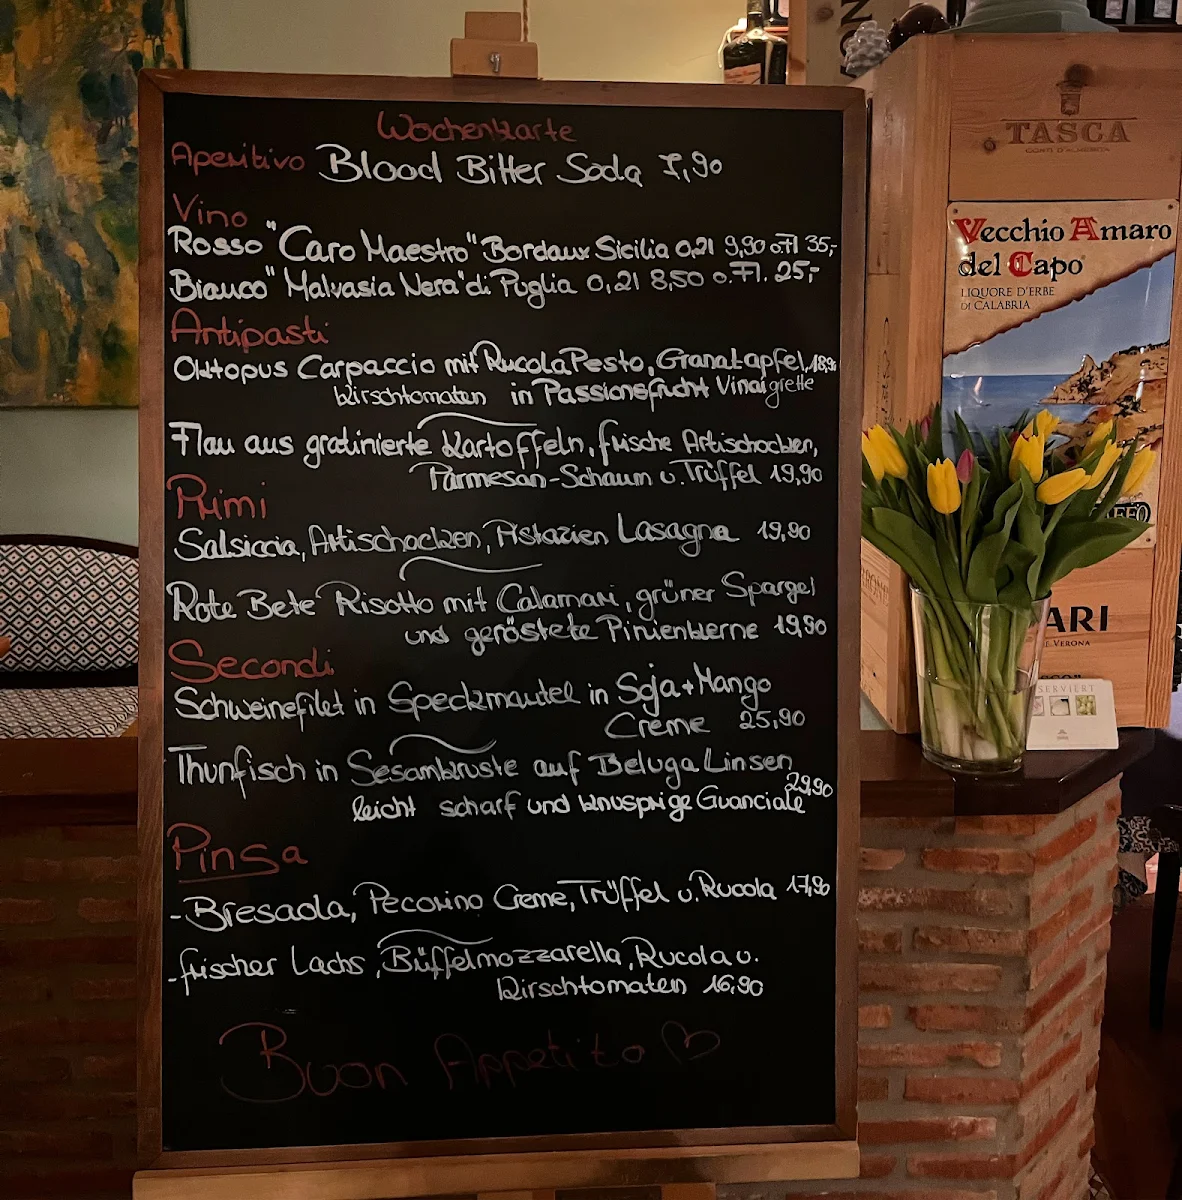 Wochenkarte
Aperitivo Blood Bitter Soda 7,90
Vino
Rosso "Caro Maestro" Bordaux Sicilia 0,2l 9,90 o.Fl 35,-
Bianco "Malvasia Nera" di Puglia 0,2l 8,50 o.Fl. 25,-
Antipasti
Oktopus Carpaccio mit Rucola Pesto, Granatapfel, 18,90
Kirschtomaten in Passionsfrucht Vinaigrette
Flau aus gratinierte Kartoffeln, frische Artischocken,
Parmesan-Schaum u. Trüffel 19,90
Primi
Salsiccia, Artischocken, Pistazien Lasagna 19,90
Rote Bete Risotto mit Calamari, grüner Spargel
und geröstete Pinienkerne 19,90
Secondi
Schweinefilet in Speckmantel in Soja + Mango
Creme 25,90
Thunfisch in Sesamkruste auf Beluga Linsen
29,90
leicht scharf und knusprige Guanciale
Pinsa
- Bresaola, Pecorino Creme, Trüffel u. Rucola 17,90
- frischer Lachs, Büffelmozzarella, Rucola u.
Kirschtomaten 16,90
Buon Appetito
TASCA
CONTI D'ALMERITA
Vecchio Amaro
del Capo
LIQUORE D'ERBE
DI CALABRIA
ARI
VERONA
SERVIERT